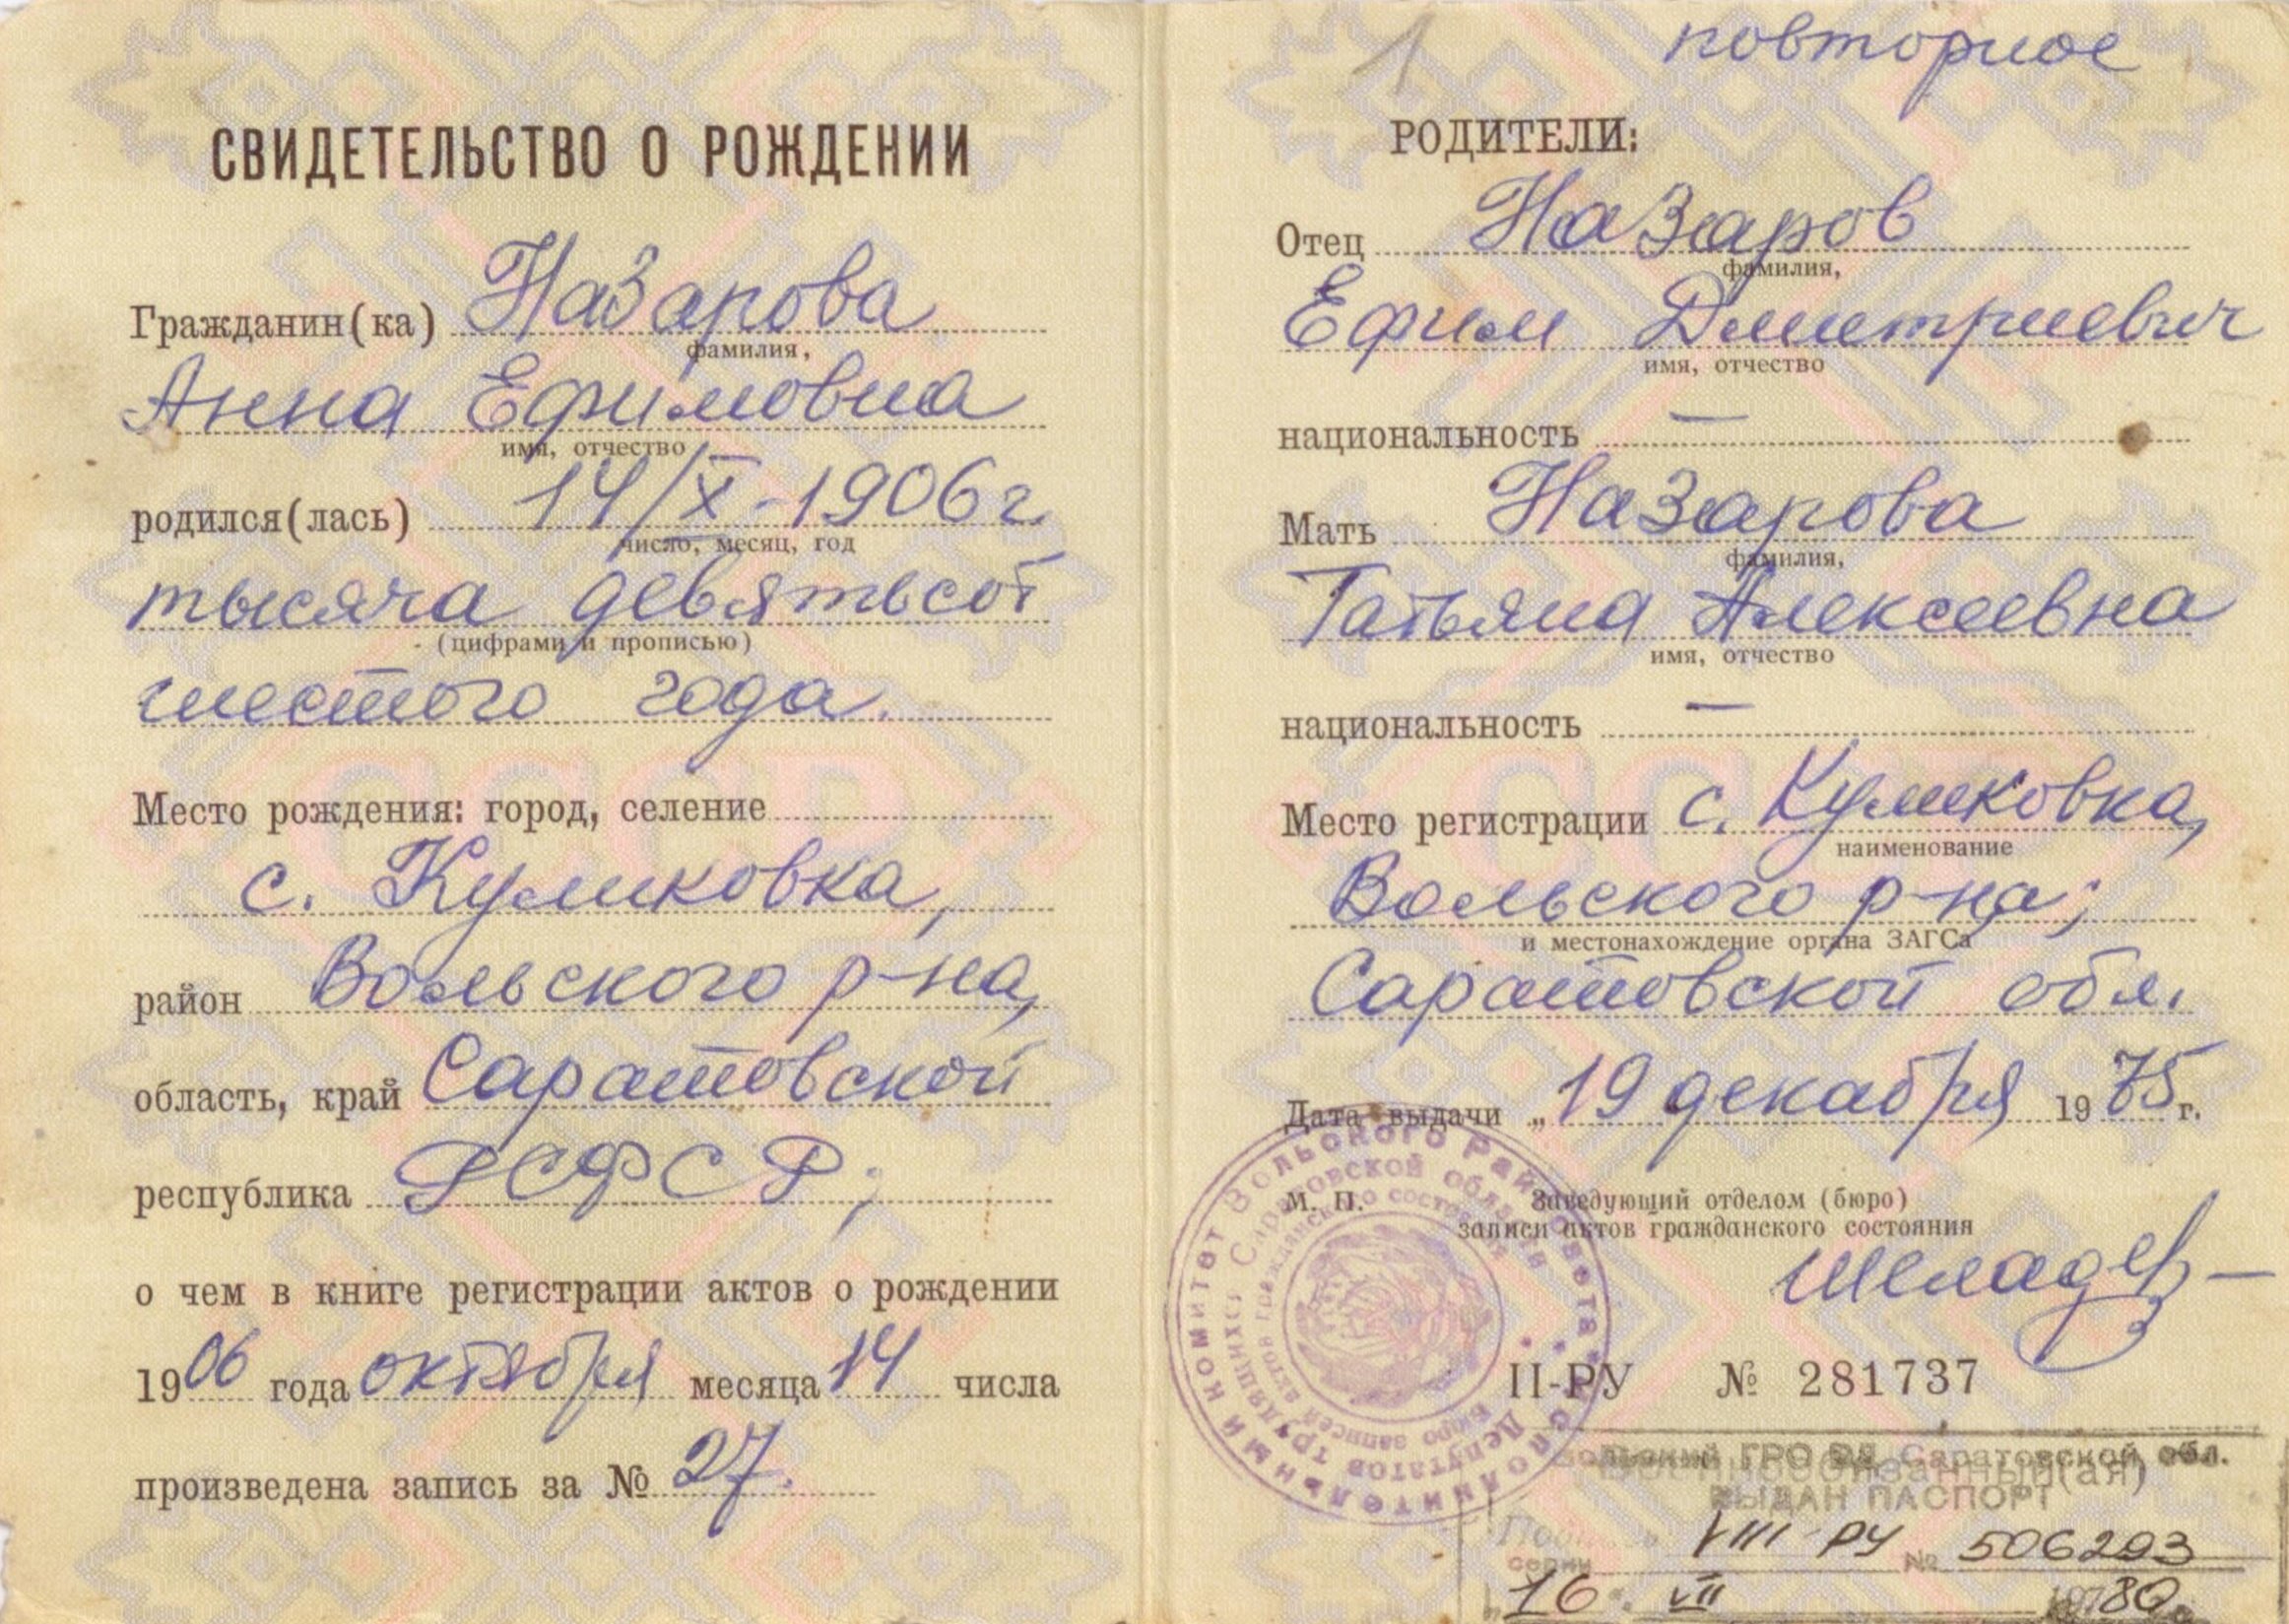 СВИДЕТЕЛЬСТВО О РОЖДЕНИИ
Гражданин(ка) Назарова
фамилия,
Анна Ефимовна
имя, отчество
родился(лась) 14/X-1906 г
число, месяц, год
тысяча девятьсот
(цифрами и прописью)
шестого года.
Место рождения: город, селение
с. Куликовка,
район Вольского р-на,
область, край Саратовской
республика РСФСР;
о чем в книге регистрации актов о рождении
1906 года октября месяца 14 числа
произведена запись за № 27.
1 повторное
РОДИТЕЛИ:
Отец Назаров
фамилия,
Ефим Дмитриевич
имя, отчество
национальность —
Мать Назарова
фамилия,
Татьяна Алексеевна
имя, отчество
национальность —
Место регистрации с. Куликовка,
наименование
Вольского р-на;
и местонахождение органа ЗАГСа
Саратовской обл.
Дата выдачи „19 декабря 1975 г.
М. П. Заведующий отделом (бюро)
записи актов гражданского состояния
II-РУ № 281737
Вольский ГРО ВД Саратовской обл.
Военнообязанный(ая)
ВЫДАН ПАСПОРТ
серии VIII РУ № 506293
16. VII 1980.